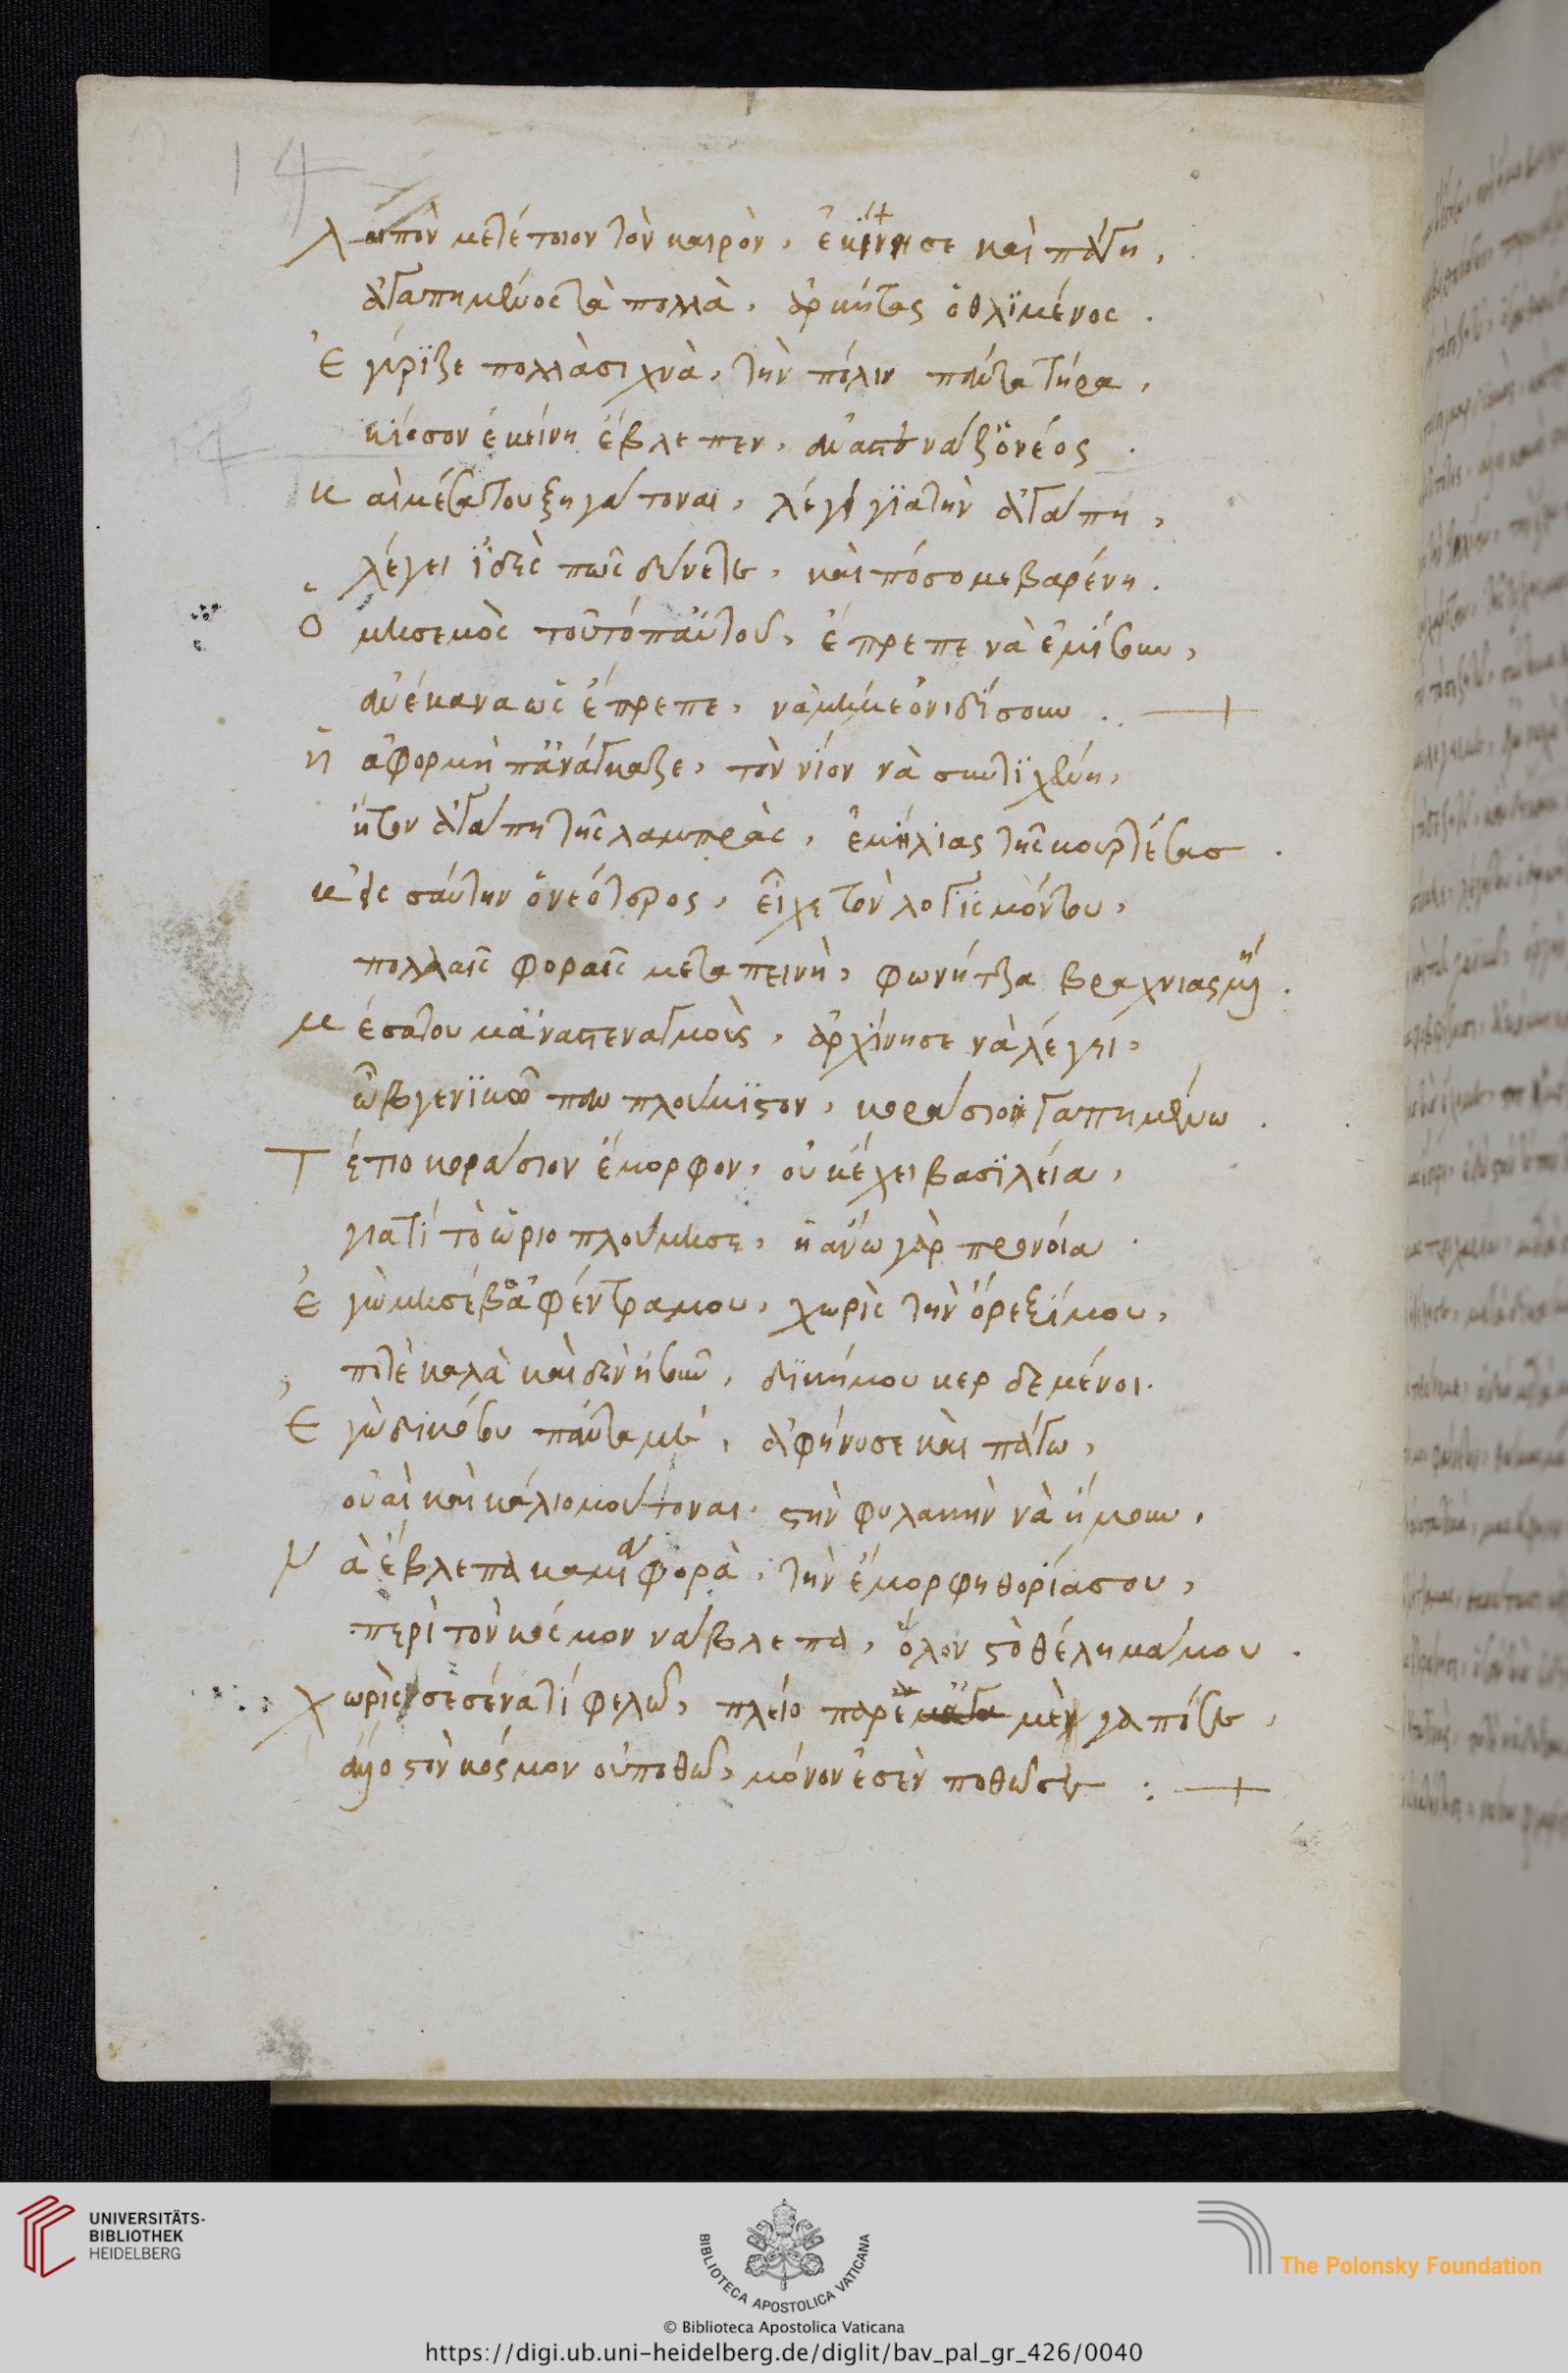 14
Λοιπὸν μετέτοιον τὸν καιρὸν, ἐκίνησε καὶ πάγη,
ἀγαπημένος τὰ πολλὰ, ἀρκήτας ὁ θλϊμένος .
Ἐγύρϊζε πολλὰ σιχνὰ, τὴν πόλιν πάντα τήρα,
κιόσον ἐκείνη ἔβλεπεν, ὁ νέος .
καὶ μέσα του ξηγάτοναι, λέγει γϊα τὴν ἀγάπη,
λέγει ϊδὲς πῶς δύνεται, καὶ πόσο με βαρένη .
Ὁ μισεμὸς τοῦτό παὐτοῦ, ἔπρεπε νὰ
ἂν έκανα ὡς ἔπρεπε, νὰ μὴ με ὀνιδίσουν . +
ἡ ἀφορμὴ πἀνάγκαζε, τὸν νέον νὰ συντϊχένη,
ἦτον ἀγάπη τῆς λαμπρὰς, ἐμήλιας τῆς κουρτέσας .
κ' εἰς σαύτην ὁ νεότερος, εἶχε τὸν λογϊσμόν του,
πολλαῖς φοραῖς με ταπεινὴ, φωνήτζα βραχνιασμένη .
μέσα του κἀναπεναγμοὺς, ἀρχίνησε νὰ λέγει,
ὦ εὐγενϊκὸ που πλούμϊζον, κοράσιον γαπημένω .
Τέπιο κοράσιον ἔμορφον, οὐκ έχει βασϊλεία,
γιατί τὸ ὥριο πλούμισε, ἡ ἄνω γὰρ προνόία .
Ἐγὼ μισέβο ἀφέντρα μου, χωρὶς τὴν όρεξί μου,
ποτὲ καλὰ καὶ δὲν δϊκή μου κερδεμένοι .
Ἐγὼ πάντα με, ἀφήνο σε καὶ πάγω,
οὐαὶ καὶ κάλιο μού τοναι, στὴν φυλακὴν νὰ ήμουν,
Νὰ ἔβλεπα καμία φορὰ, τὴν ἔμορφη θορία σου,
περὶ τὸν κόσμον νὰ βλεπα, ὅλον στὸ θέλημά μου .
χωρὶς σεσένα τί φελῶ, πλείο παρὲ
ἄλλο στὸν κόσμον οὐ ποθῶ, μόνον ἐσὲν ποθῶ σε : +
UNIVERSITÄTS-
BIBLIOTHEK
HEIDELBERG
BIBLIOTECA APOSTOLICA VATICANA
The Polonsky Foundation
© Biblioteca Apostolica Vaticana
https://digi.ub.uni-heidelberg.de/diglit/bav_pal_gr_426/0040